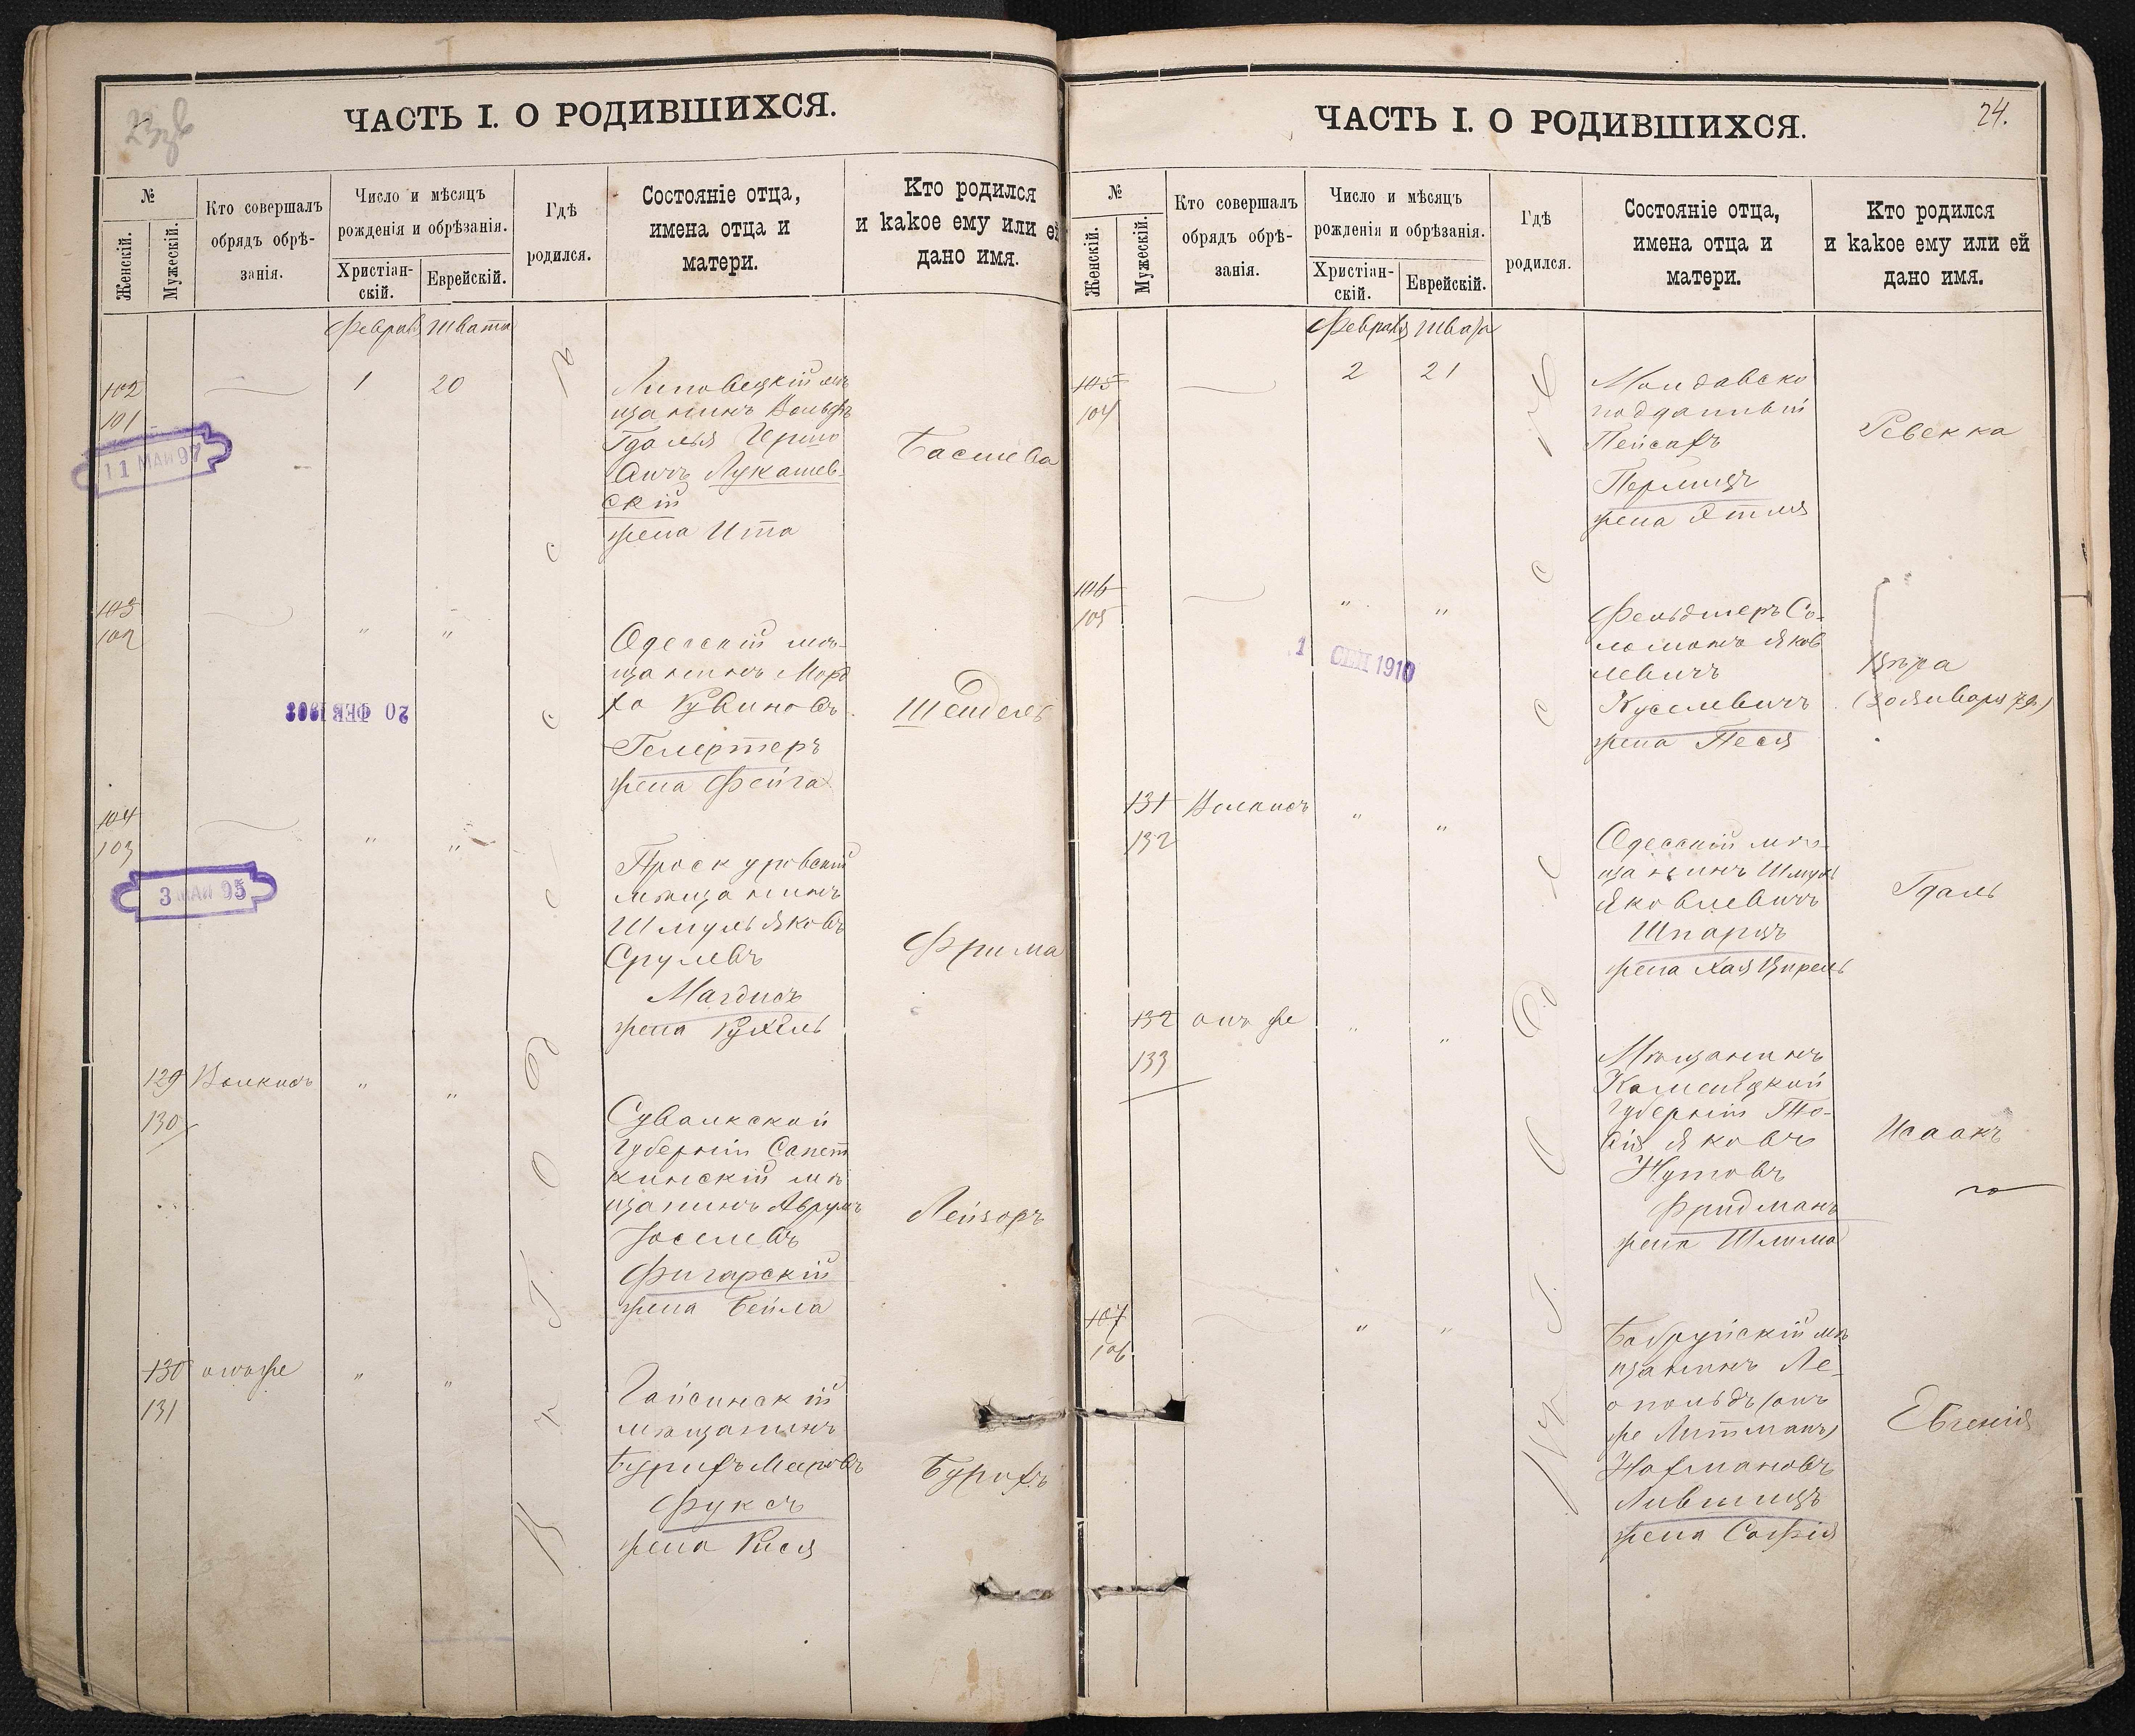 ЧАСТЬ I. О РОДИВШИХСЯ.
№
Женскій.
Мужескій.
Кто совершалъ
обрядъ обрѣ-
занія.
Число и мѣсяцъ
рожденія и обрѣзанія.
Христіан-
скій.
Еврейскій.
Гдѣ
родился.
Состояніе отца,
имена отца и
матери.
Кто родился
и какое ему или ей
дано имя.
Февраля Швата
102
101
1 20
Липовецкій мѣ-
щанинъ Вольфъ
Гдалья Гершко
вичъ Лукашев-
скій
жена Ита
Басшева
11 МАЙ 97
103
102
" "
Одесскій мѣ-
щанинъ Морд
ко Рувиновъ
Гелертеръ
жена Фейга
Шендель
20 ФЕВ 1903
104
103
" "
Проскуровскій
мѣщанинъ
Шмуль Яковъ
Срулевъ
Магдисъ
жена Рухель
Фрима
3 МАЙ 95
129
130
Волкисъ
" "
Сувалкской
губерніи Сапет
кинскій мѣ
щанинъ Аврумъ
Іоселевъ
Фигарскій
жена Бейла
Лейзоръ
130
131
онъ же
" "
Гайсинскій
мѣщанинъ
Бурихъ Мееровъ
Фуксъ
жена Рися
Бурихъ
ЧАСТЬ I. О РОДИВШИХСЯ.
24.
№
Женскій.
Мужескій.
Кто совершалъ
обрядъ обрѣ-
занія.
Число и мѣсяцъ
рожденія и обрѣзанія.
Христіан-
скій.
Еврейскій.
Гдѣ
родился.
Состояніе отца,
имена отца и
матери.
Кто родился
и какое ему или ей
дано имя.
Февраля Швата
105
104
2 21
Молдавско
подданный
Пейсахъ
Перлицъ
жена Этля
Ревекка
106
105
" "
Фельдшеръ Со-
ломонъ Яков
левичъ
Куселевичъ
жена Песя
Вѣра
1 СЕН 1910
131
132
Волкисъ
" "
Одесскій мѣ-
щанинъ Шмуль
Яковлевичъ
Шпарцъ
жена Хая Ципрель
Гдаль
132
133
онъ же
" "
Мѣщанинъ
Каменецкой
губерніи То-
вія Яковъ
Нутовъ
Фридманъ
жена Шлима
Исаакъ
107
106
" "
Бобруйскій мѣ
щанинъ Ле-
опольдъ (онъ
же Литманъ)
Нахмановъ
Лившицъ
жена Софія
Евгенія